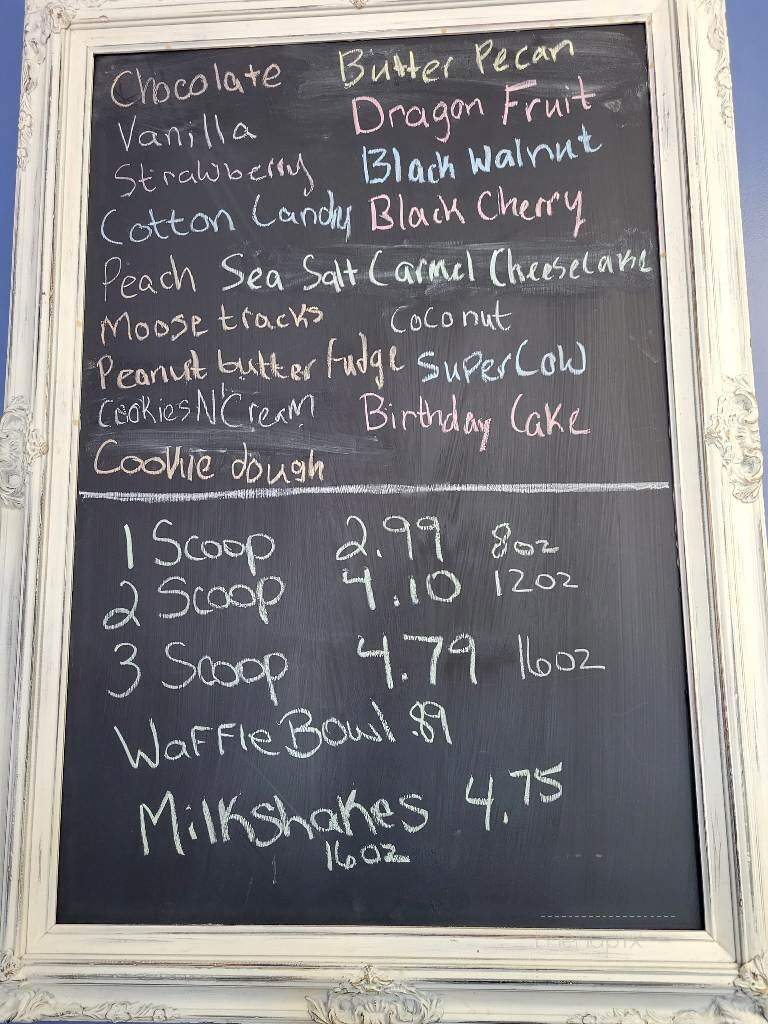 Chocolate Butter Pecan
Vanilla Dragon Fruit
Strawberry Black Walnut
Cotton Candy Black Cherry
Peach Sea Salt Carmel Cheesecake
Moose tracks Coconut
Peanut butter fudge Super Cow
Cookies N' Cream Birthday Cake
Cookie dough
1 Scoop 2.99 8oz
2 Scoop 4.10 12oz
3 Scoop 4.79 16oz
Waffle Bowl .89
Milkshakes 4.75
16oz